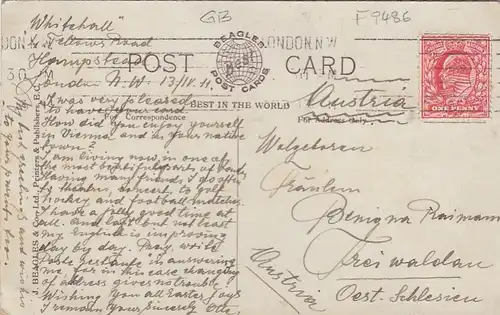 GB
F 9486
"Whitehall"
Fellows Road
Hampstead
London N.W. 13/IV.11.
LONDON N.W
BEAGLES'
BEST
POST CARDS
POST CARD
BEST IN THE WORLD
For Correspondence
For Address Only.
ONE PENNY
I was very pleased
to have your card
How did you enjoy yourself
in Vienna and in your native
town?
I am living now in one of
the most beautiful parts of
having many friend, I do often
to theatre, concert, to golf
hockey and football matches.
I have a jolly good time at
all. And last but not least
my English is improving
day by day. Pray, write
Poste restante in answering
me, for in this case changing
of address gives no trouble.
Wishing you all Easter Joys
I remain Yours Sincerely Otto
My best greetings and wishes
to your parents too.
J. BEAGLES & Co., Ltd., Printers & Publishers, E.C.
Austria
Welgeboren
Fräulein
Benigna Raimann
Freiwaldau
Oest. Schlesien
Austria